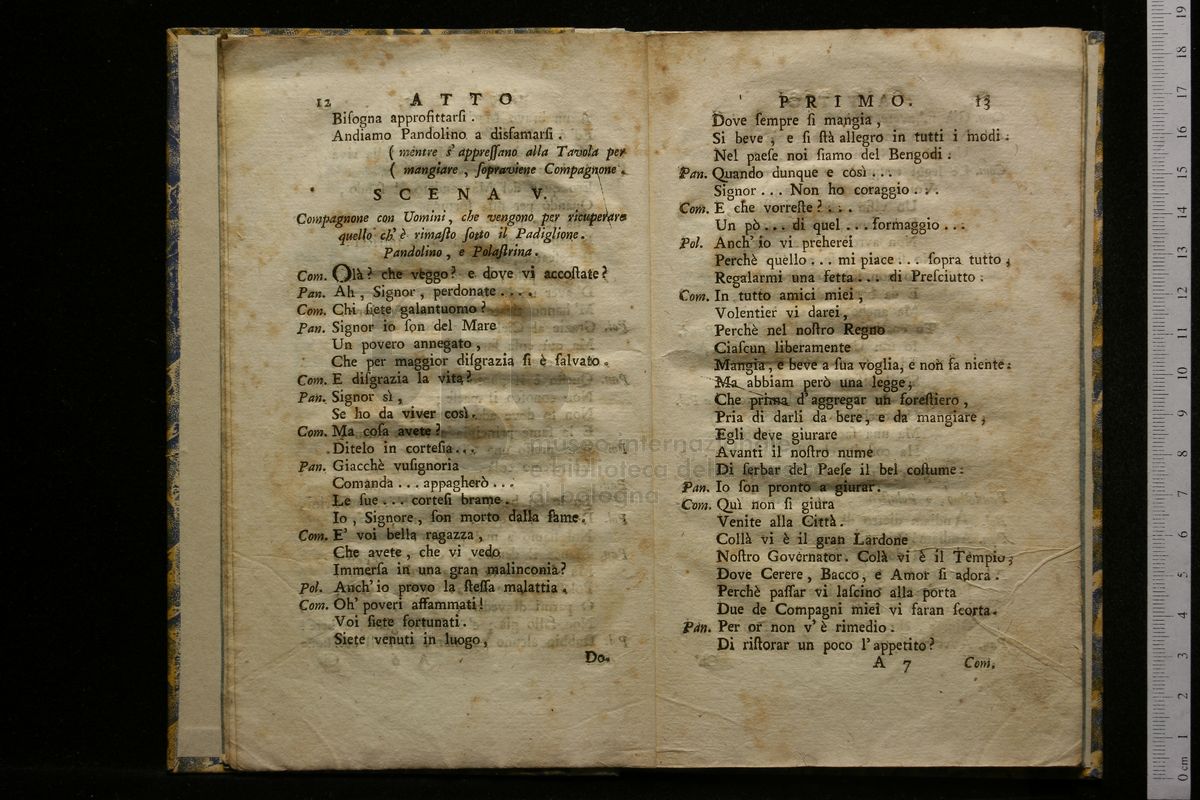 12 ATTO
Bisogna approfittarsi.
Andiamo Pandolino a disfamarsi.
( mentre s' appressano alla Tavola per
( mangiare, sopraviene Compagnone.
SCENA V.
Compagnone con Uomini, che vengono per ricuperare
quello ch' è rimasto sotto il Padiglione.
Pandolino, e Polastrina.
Com. Olà? che veggo? e dove vi accostate?
Pan. Ah, Signor, perdonate....
Com. Chi siete galantuomo?
Pan. Signor io son del Mare
Un povero annegato,
Che per maggior disgrazia si è salvato.
Com. E disgrazia la vita?
Pan. Signor sì,
Se ho da viver così.
Com. Ma cosa avete?
Ditelo in cortesia...
Pan. Giacchè vusignoria
Comanda... appagherò...
Le sue... cortesi brame.
Io, Signore, son morto dalla fame.
Com. E' voi bella ragazza,
Che avete, che vi vedo
Immersa in una gran malinconia?
Pol. Anch' io provo la stessa malattia.
Com. Oh' poveri affammati!
Voi siete fortunati.
Siete venuti in luogo,
Do-
PRIMO. 13
Dove sempre si mangia,
Si beve, e si stà allegro in tutti i modi:
Nel paese noi siamo del Bengodi.
Pan. Quando dunque e così...
Signor... Non ho coraggio...
Com. E che vorreste?...
Un pò... di quel... formaggio...
Pol. Anch' io vi preherei
Perchè quello... mi piace... sopra tutto,
Regalarmi una fetta... di Presciutto.
Com. In tutto amici miei,
Volentier vi darei,
Perchè nel nostro Regno
Ciascun liberamente
Mangia, e beve a sua voglia, e non fa niente.
Ma abbiam però una legge,
Che prima d' aggregar un forestiero,
Pria di darli da bere, e da mangiare,
Egli deve giurare
Avanti il nostro nume
Di serbar del Paese il bel costume.
Pan. Io son pronto a giurar.
Com. Quì non si giura
Venite alla Città.
Collà vi è il gran Lardone
Nostro Governator. Colà vi è il Tempio,
Dove Cerere, Bacco, e Amor si adora.
Perchè passar vi lascino alla porta
Due de Compagni miei vi faran scorta.
Pan. Per or non v' è rimedio.
Di ristorar un poco l' appetito?
A 7 Com.
museo internazionale
e biblioteca della
di bologna